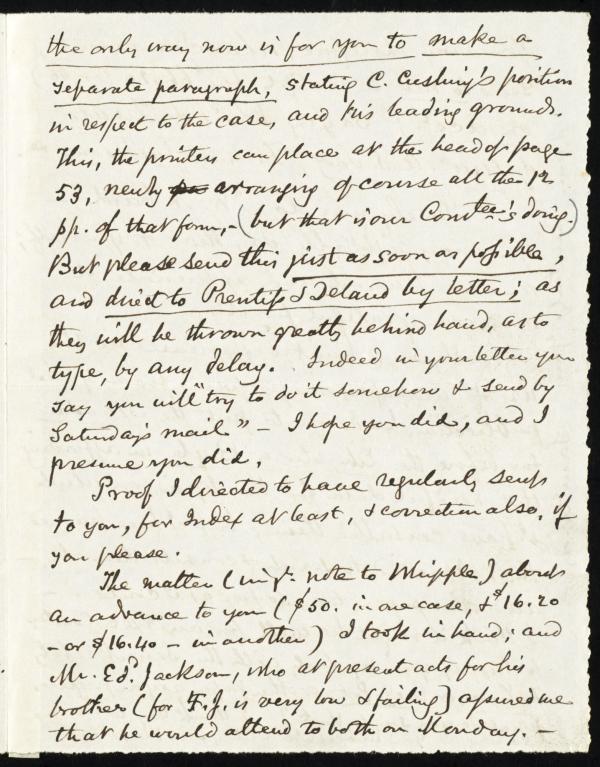 the only way now is for you to make a
separate paragraph, stating C. Cushing's position
in respect to the case, and his leading grounds.
This, the printers can place at the head of page
53, newly arranging of course all the 12
pp. of that form,- (but that is our Comtee's doing.)
But please send this just as soon as possible,
and direct to Prentiss & Deland by letter; as
they will be thrown greatly behind hand, as to
type, by any delay. Indeed in your letter you
say you will "try to do it somehow & send by
Saturday's mail" - I hope you did, and I
presume you did.
Proof I directed to have regularly sent
to you, for Index at least, & correction also, if
you please.
The matter (in yr. note to Whipple) about
an advance to you ($50. in one case, & $16.20
- or $16.40 - in another) I took in hand; and
Mr. Edd. Jackson, who at present acts for his
brother (for F.J. is very low & failing) assured me
that he would attend to both on Monday. -